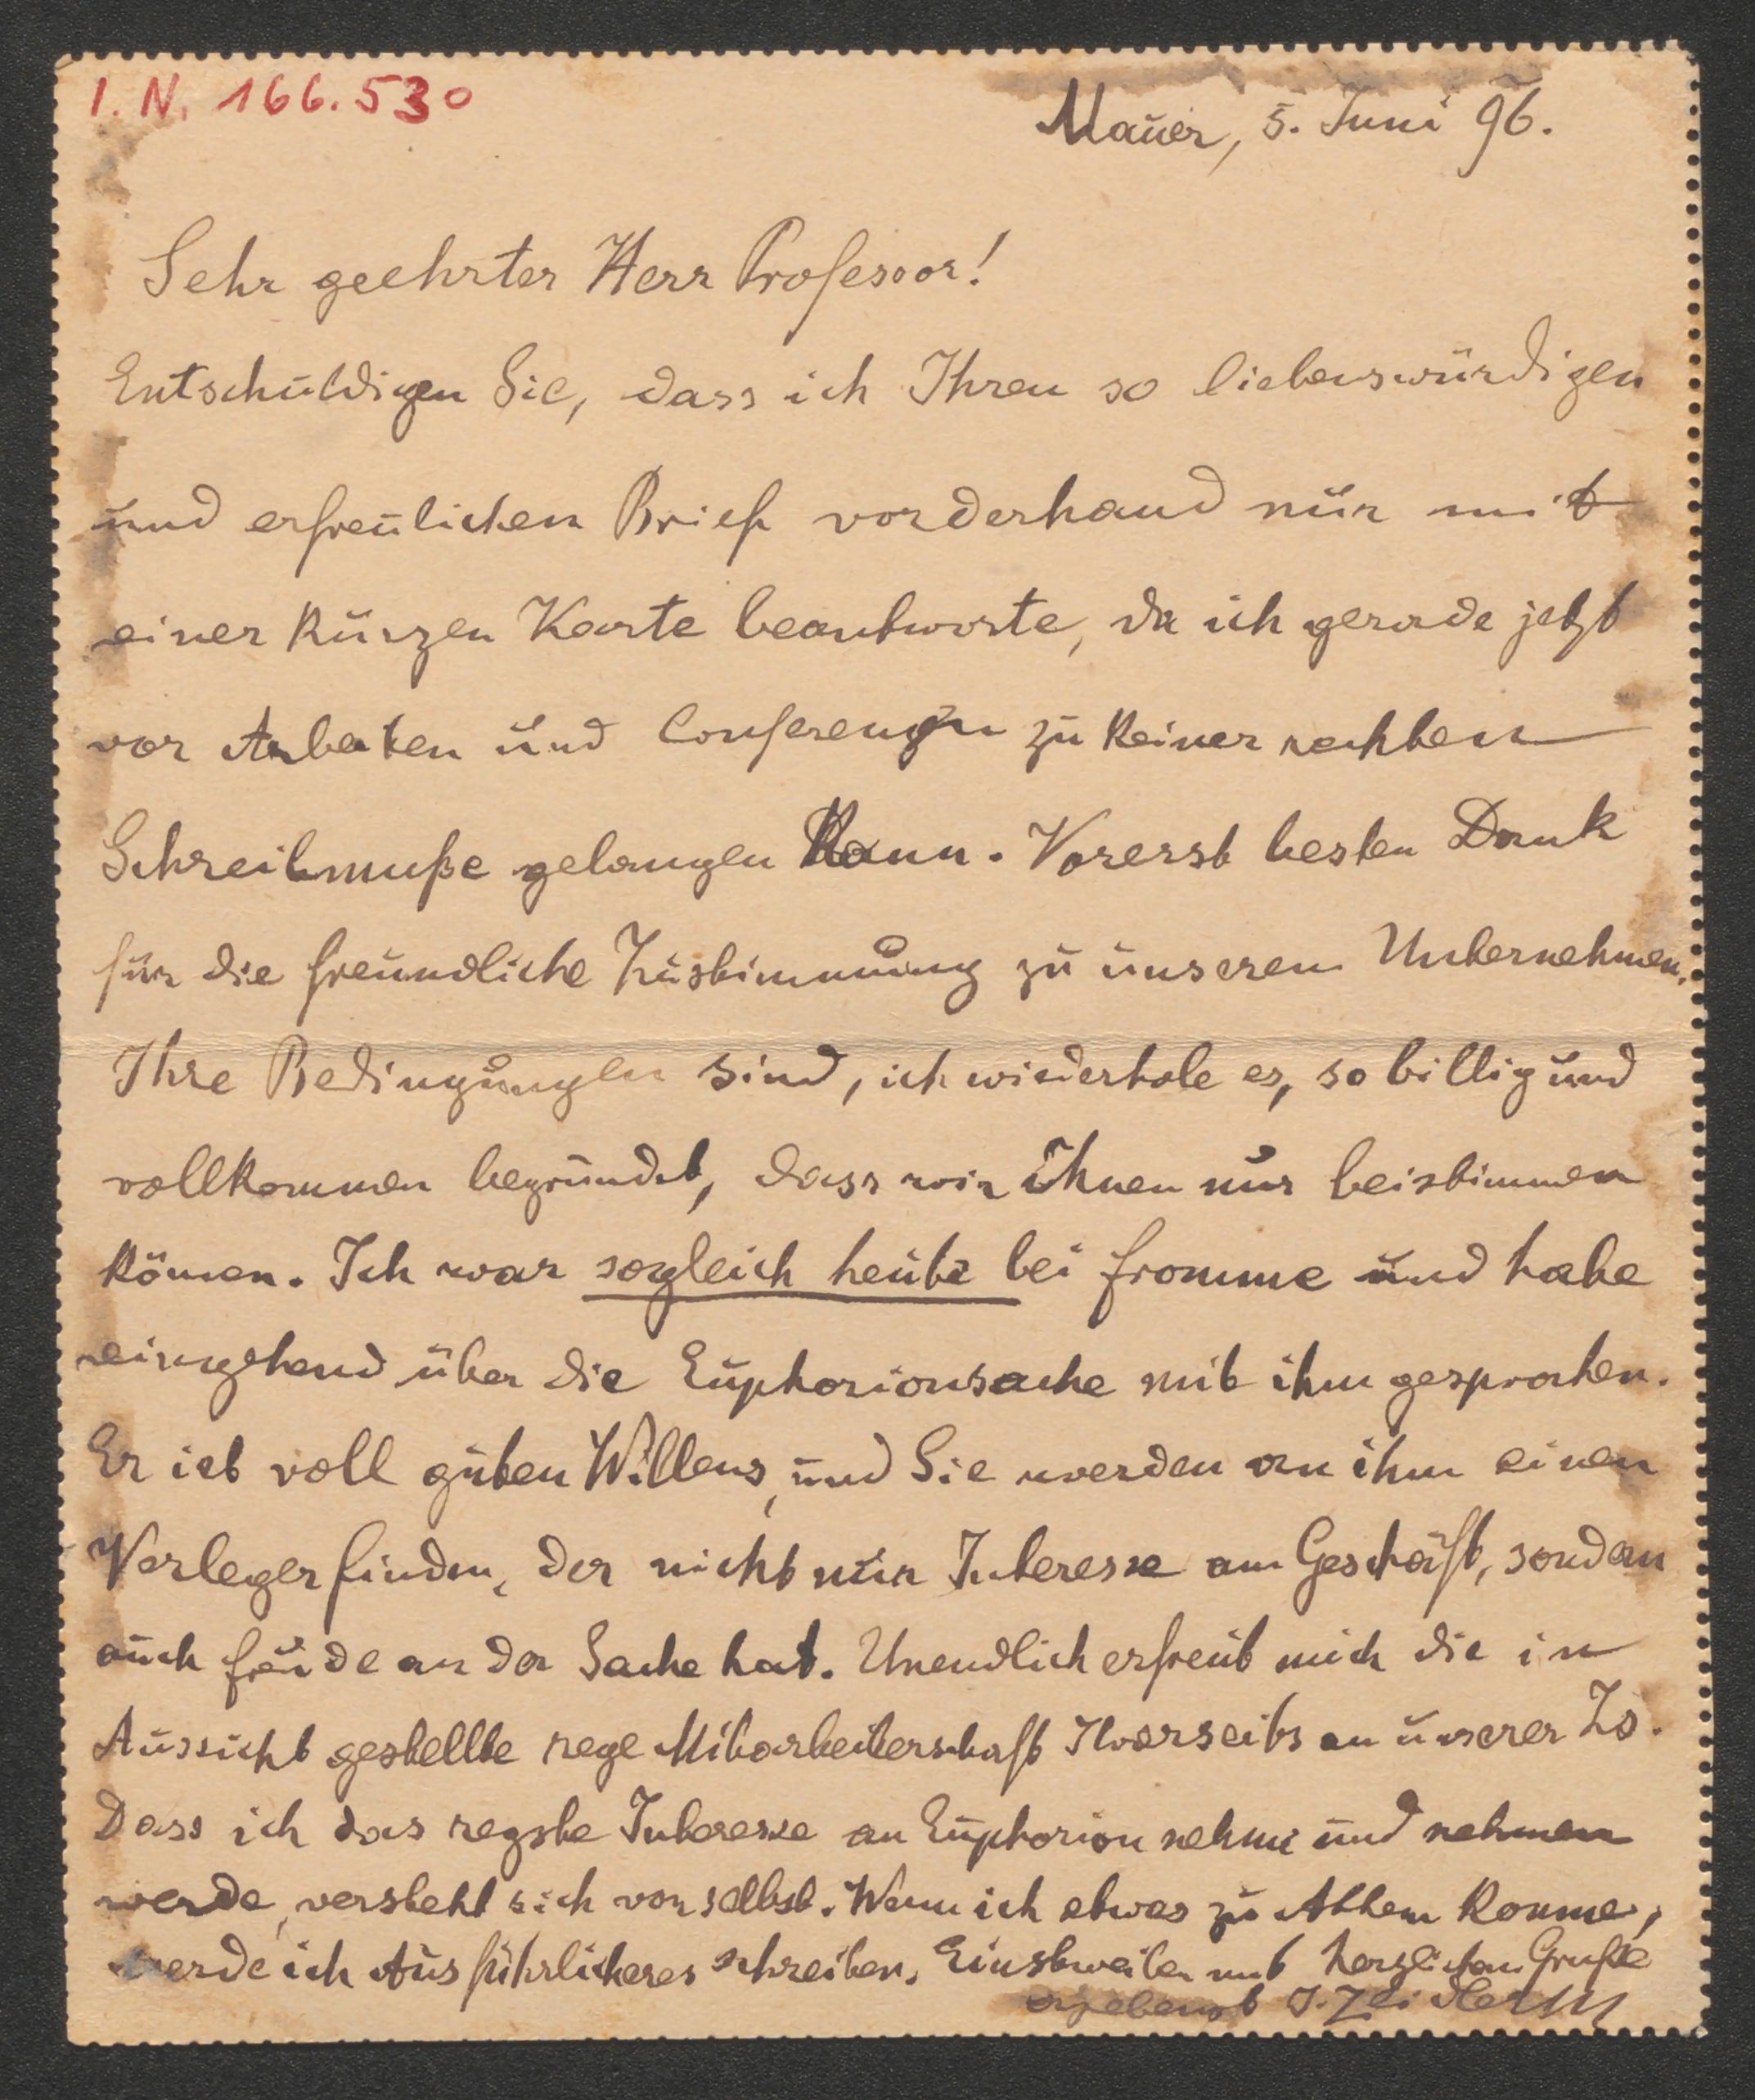 I. N. 166.530
Mauer, 5. Juni 96.
Sehr geehrter Herr Professor!
Entschuldigen Sie, dass ich Ihren so liebenswürdigen
und erfreulichen Brief vorderhand nur mit
einer kurzen Karte beantworte, da ich gerade jetzt
vor Arbeiten und Conferenzen zu keiner rechten
Schreibmuße gelangen kann. Vorerst besten Dank
für die freundliche Zustimmung zu unserem Unternehmen.
Ihre Bedingungen sind, ich wiederhole es, so billig und
vollkommen begründet, dass wir Ihnen nur beistimmen
können. Ich war sogleich heute bei Fromme und habe
eingehend über die Euphorionsache mit ihm gesprochen.
Er ist voll guten Willens, und Sie werden an ihm einen
Verleger finden, der nicht nur Interesse am Geschäft, sondern
auch Freude an der Sache hat. Unendlich erfreut mich die in
Aussicht gestellte rege Mitarbeiterschaft Ihrerseits an unserer Zs.
Dass ich das regste Interesse an Euphorion nehme und nehmen
werde, versteht sich von selbst. Wenn ich etwas zu Athem komme,
werde ich Ausführlicheres schreiben. Einstweilen mit herzlichem Gruße
ergebenst J. Zeidler